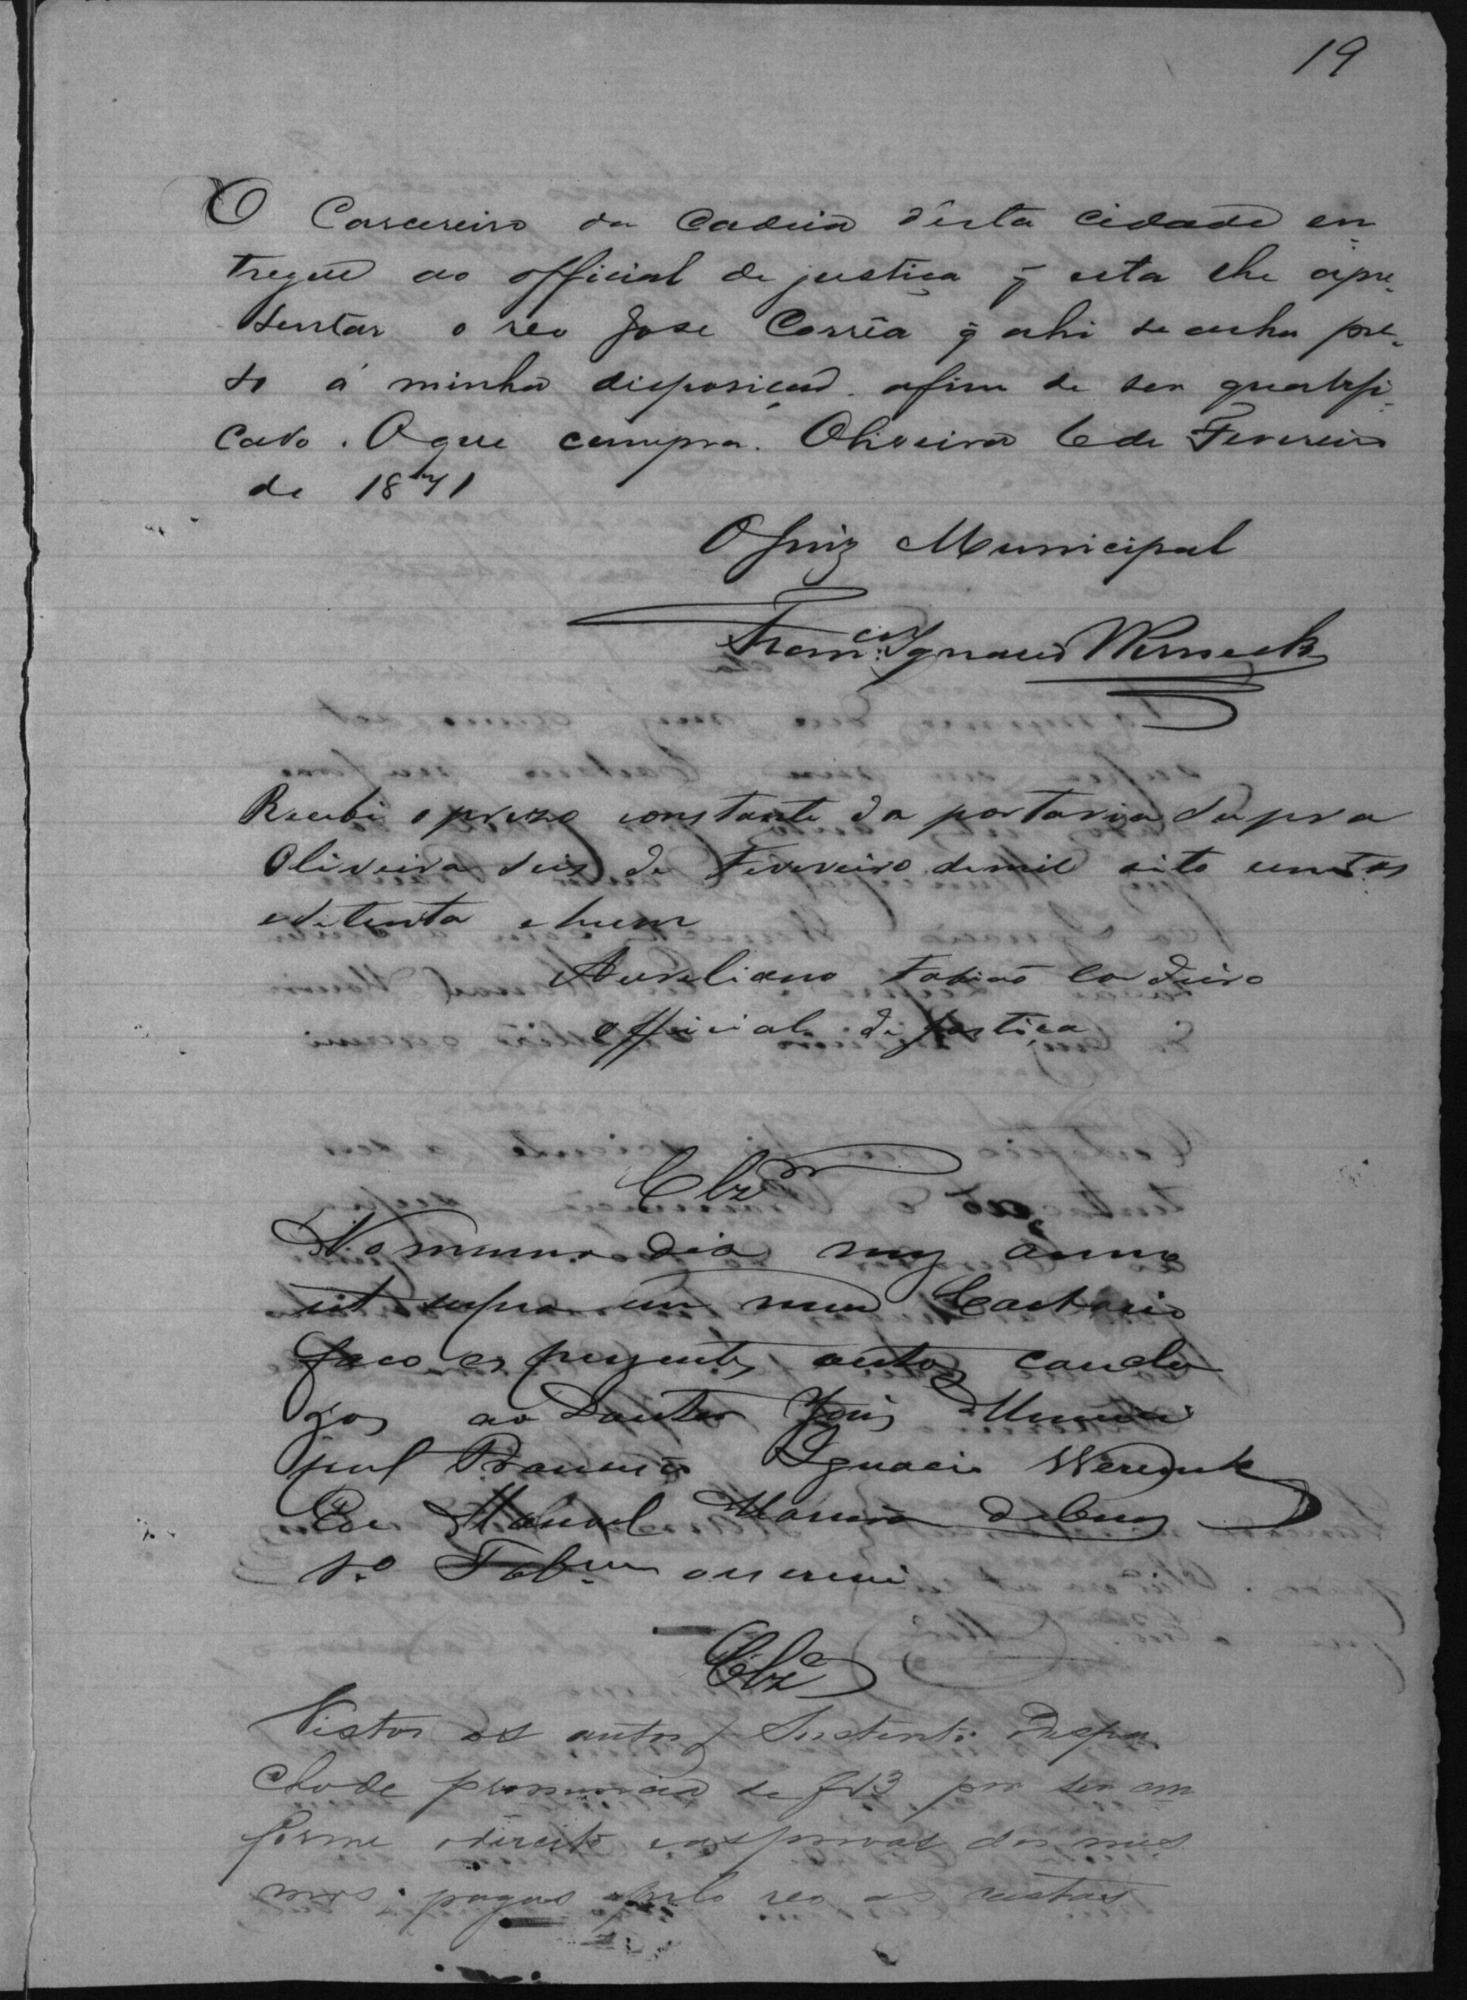 19
O Carcereiro da Cadeia d'esta cidade en
tregue ao official de justiça q̃ esta lhe apre-
sentar o reo José Corrêa q̃ ahi se acha pre-
so á minha disposição afim de ser qualifi-
cado. O que cumpra. Oliveira 6 de Fevereiro
de 1871
O Juiz Municipal
Franco. Ignacio Werneck
Recebi o prezo constante da portaria supra
Oliveira seis de Fevereiro de mil oito centos
e setenta e hum
Aureliano Fabiao Cordeiro
official de justiça
Clzm
No mesmo dia mez anno
ut supra em meu Cartorio
faco os prezentes autos conclu
zos ao Doutor Juis Munici
pal Francisco Ignacio Werneck
Eu Manoel
so Tabm o escrevi
Clzo
Vistos os autos Sustento o Despa
cho de pronuncia de f 13 por ser con
forme o direito e as provas dos mes
mos; pagas pelo reo as custas